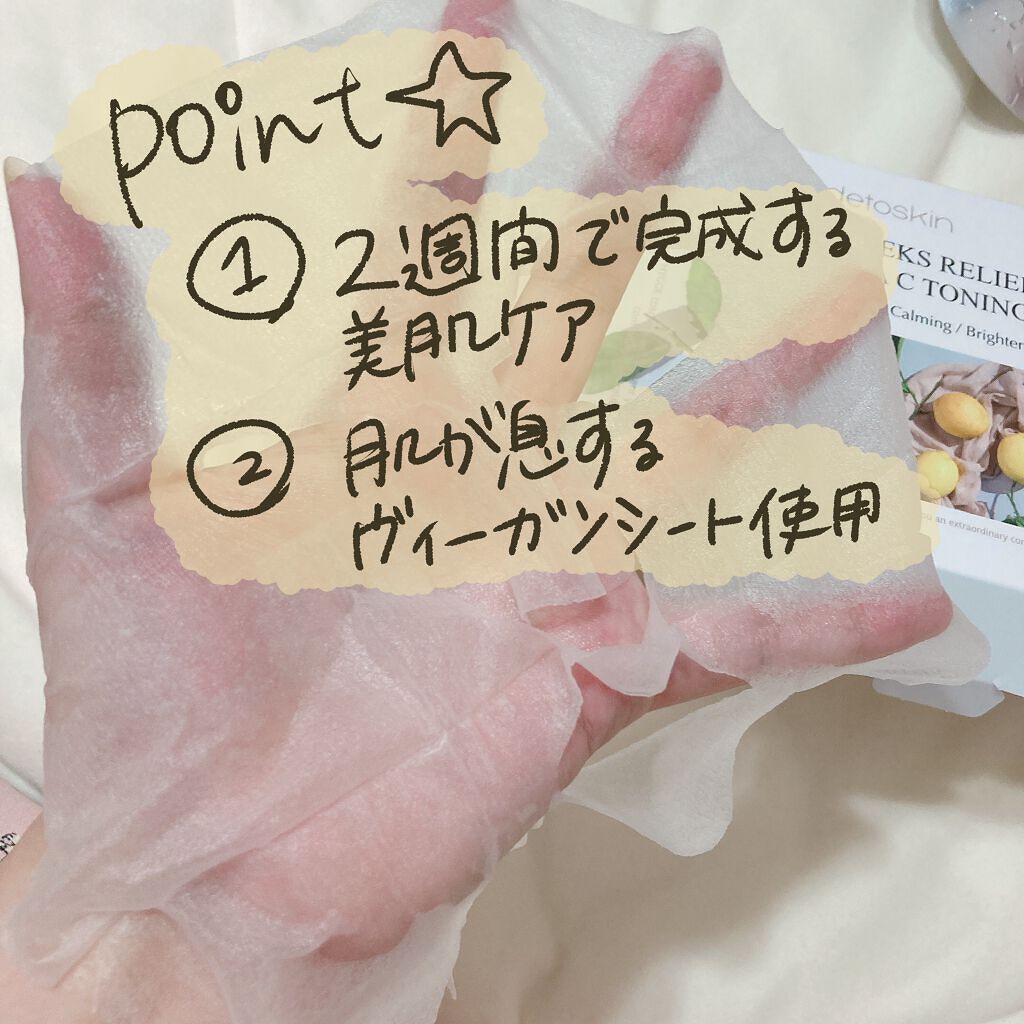 point☆
① 2週間で完成する
美肌ケア
② 肌が息する
ヴィーガンシート使用
detoskin
EKS RELIEF
C TONING
Calming / Brighten
an extraordinary